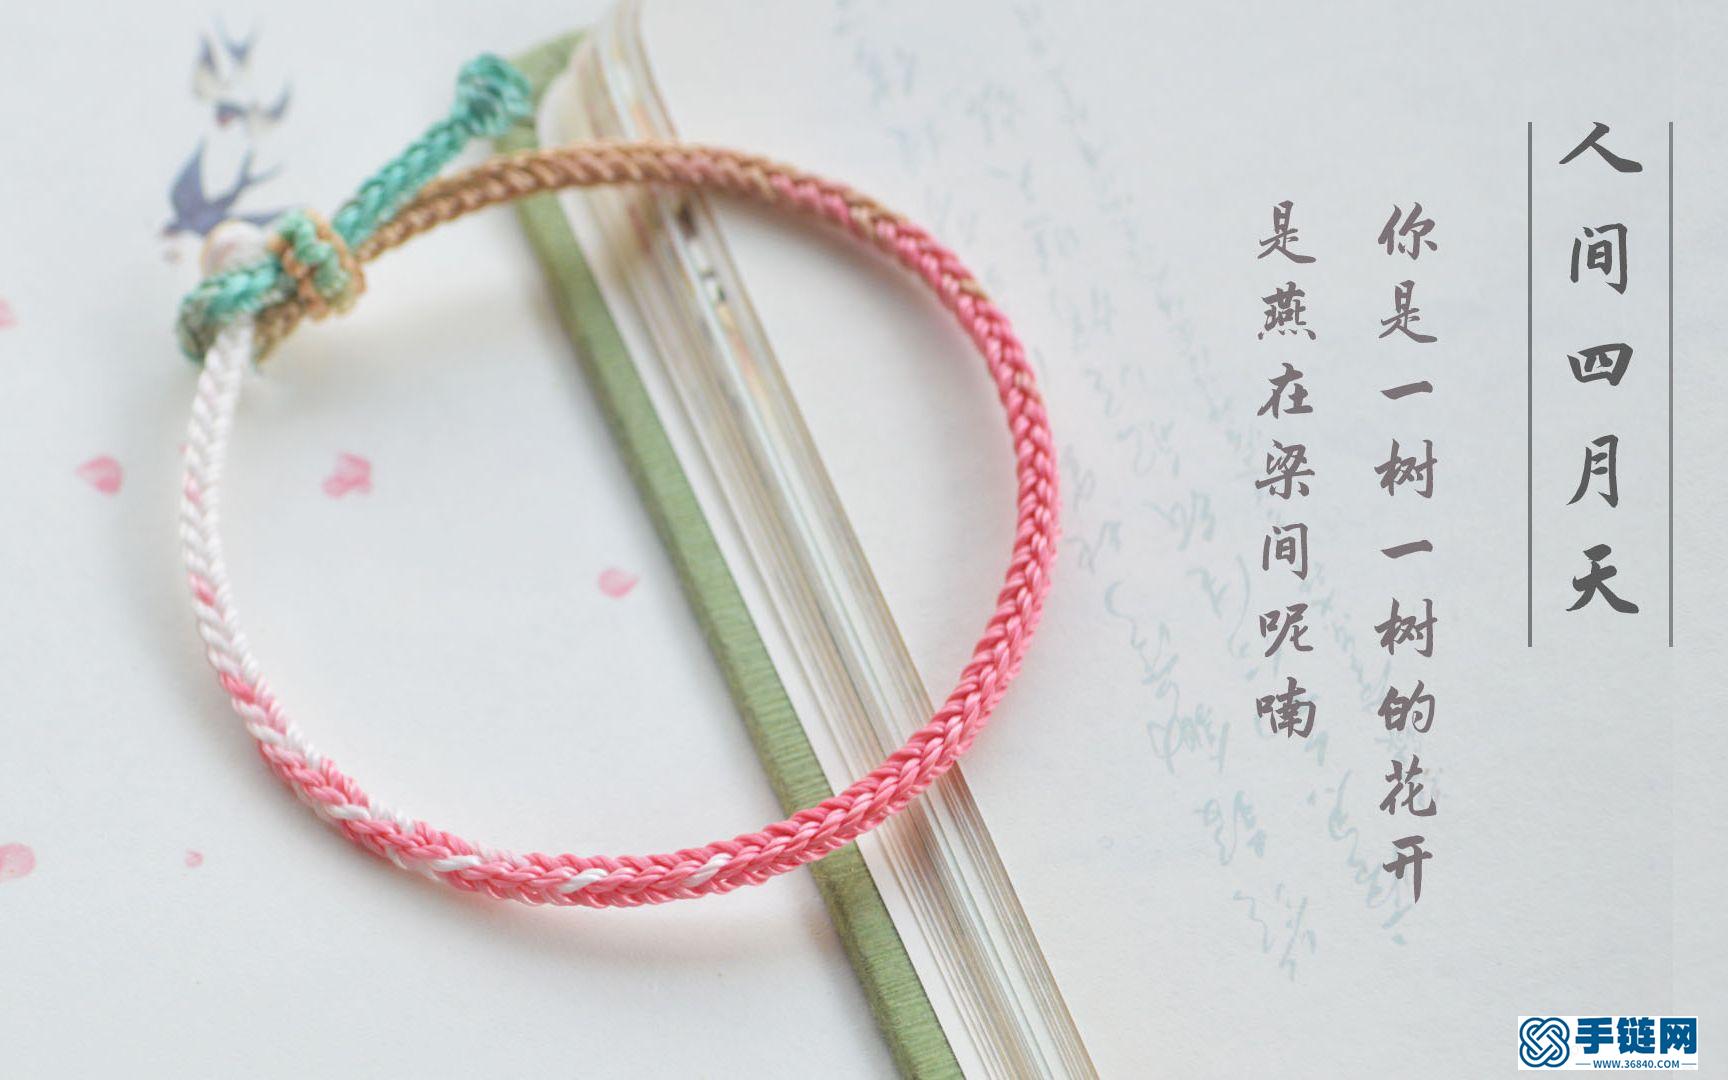 人间四月天
你是一树一树的花开
是燕在梁间呢喃
手链网
WWW.36840.COM